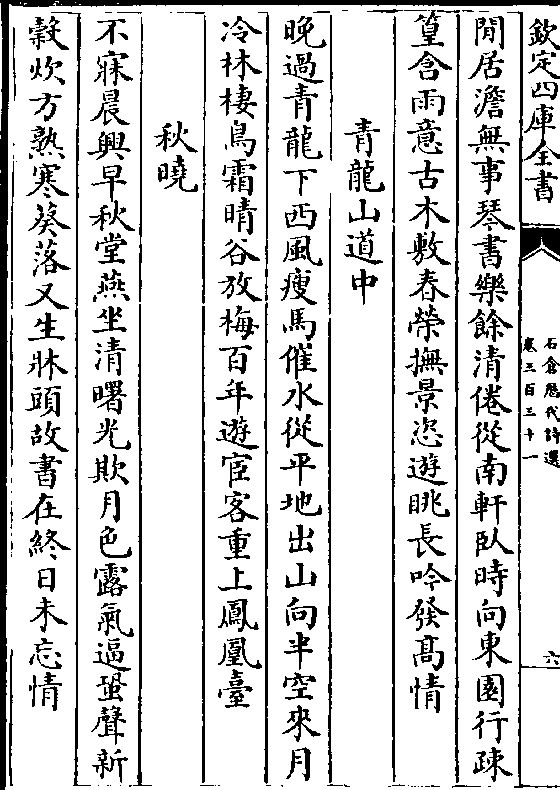 欽定四庫全書
石倉歷代詩選
卷三百三十一
六
閒居澹無事琴書樂餘清倦從南軒臥時向東園行疎
篁含雨意古木敷春榮撫景恣遊眺長吟發髙情
青龍山道中
晚過青龍下西風瘦馬催水從平地出山向半空來月
冷林棲鳥霜晴谷放梅百年遊宦客重上鳳凰臺
秋曉
不寐晨興早秋堂燕坐清曙光欺月色露氣逼蛩聲新
穀炊方熟寒葵落又生牀頭故書在終日未忘情